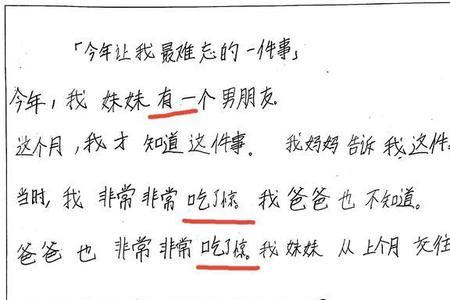 「今年让我最难忘的一件事」
今年,我 妹妹 有一个男朋友.
这个月,我才 知道 这件事。 我妈妈 告诉 我这件
当时,我 非常 非常 吃了惊 我爸爸也 不知道。
爸爸 也 非常 非常 吃了惊。我妹妹 从 上个月 交往